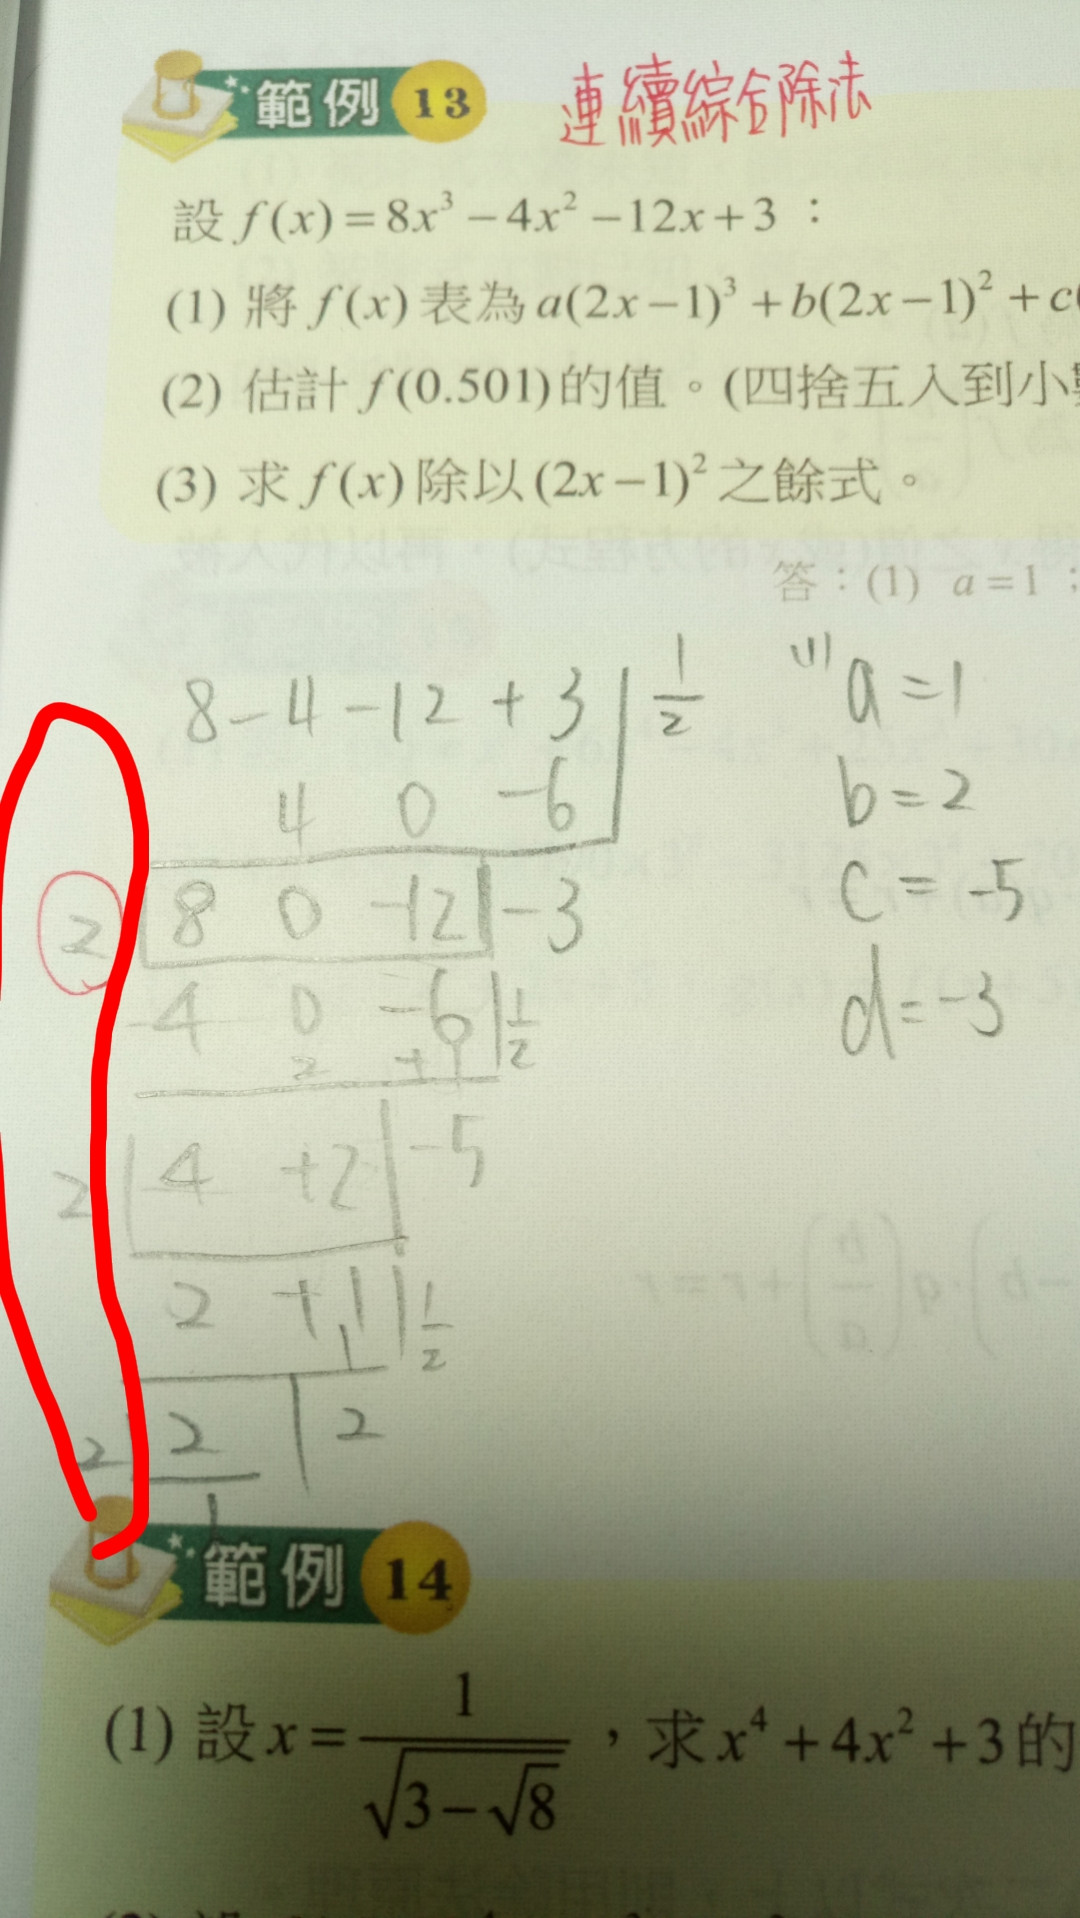 範例 13 連續綜合除法
設 f(x) = 8x³ − 4x² − 12x + 3：
(1) 將 f(x) 表為 a(2x−1)³ + b(2x−1)² + c
(2) 估計 f(0.501) 的值。(四捨五入到小
(3) 求 f(x) 除以 (2x−1)² 之餘式。
答：(1) a = 1；
8 − 4 − 12 + 3 1/2
4 0 −6
2 8 0 −12 −3
4 0 −6 1/2
2 +1
2 4 +2 −5
2 +1 1/2
1
2 2 2
1
(1) a = 1
b = 2
c = −5
d = −3
範例 14
(1) 設 x = 1/√(3−√8)，求 x⁴ + 4x² + 3 的